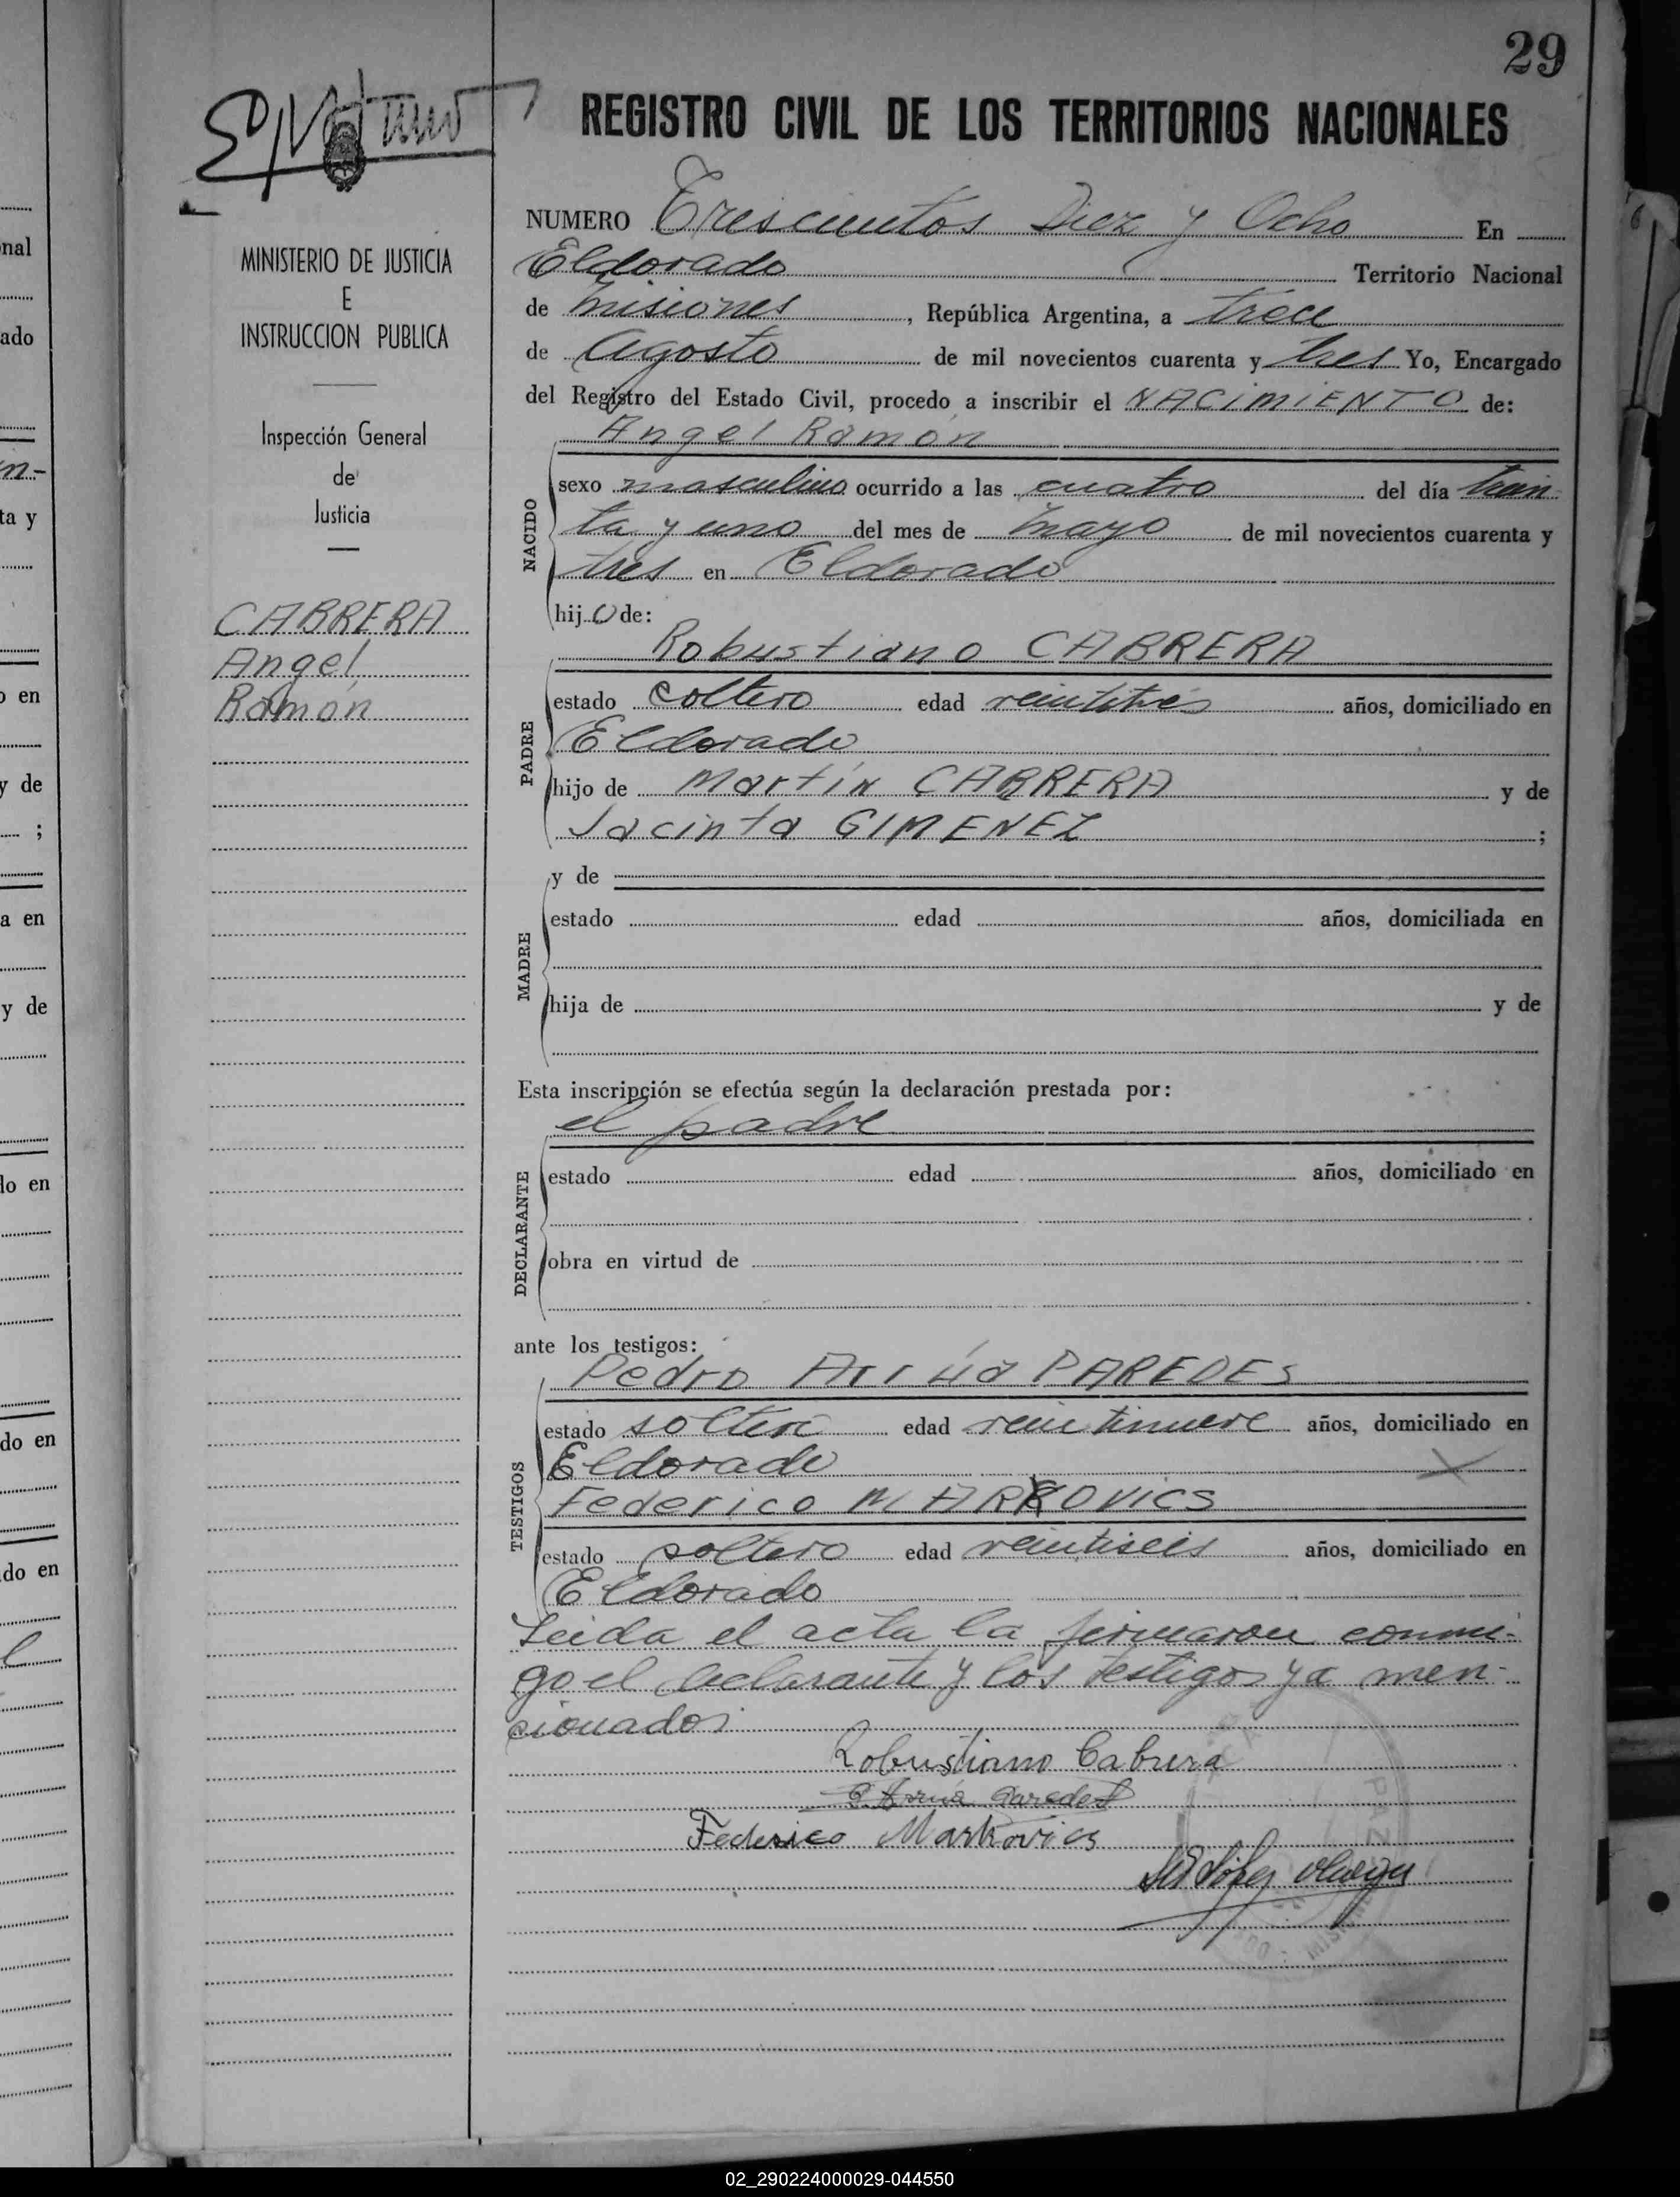 29
REGISTRO CIVIL DE LOS TERRITORIOS NACIONALES
MINISTERIO DE JUSTICIA
E
INSTRUCCION PUBLICA
Inspección General
de
Justicia
CABRERA
Angel
Ramón
NUMERO Trescientos Diez y Ocho En
Eldorado Territorio Nacional
de Misiones, República Argentina, a trece
de Agosto de mil novecientos cuarenta y tres Yo, Encargado
del Registro del Estado Civil, procedo a inscribir el NACIMIENTO de:
Angel Ramón
NACIDO
sexo masculino ocurrido a las cuatro del día trein-
ta y uno del mes de Mayo de mil novecientos cuarenta y
tres en Eldorado
hijo de:
Robustiano CABRERA
PADRE
estado soltero edad veintitrés años, domiciliado en
Eldorado
hijo de Martín CABRERA y de
Jacinta GIMENEZ ;
y de
MADRE
estado edad años, domiciliada en
hija de y de
Esta inscripción se efectúa según la declaración prestada por:
el padre
DECLARANTE
estado edad años, domiciliado en
obra en virtud de
ante los testigos:
Pedro PAREDES
TESTIGOS
estado soltero edad veintinueve años, domiciliado en
Eldorado
Federico MARKOVICS
estado soltero edad veintiseis años, domiciliado en
Eldorado
Leida el acta la firmaron conmi-
go el declarante y los testigos ya men-
cionados
Robustiano Cabrera
Paredes
Federico Markovics
02_290224000029-044550